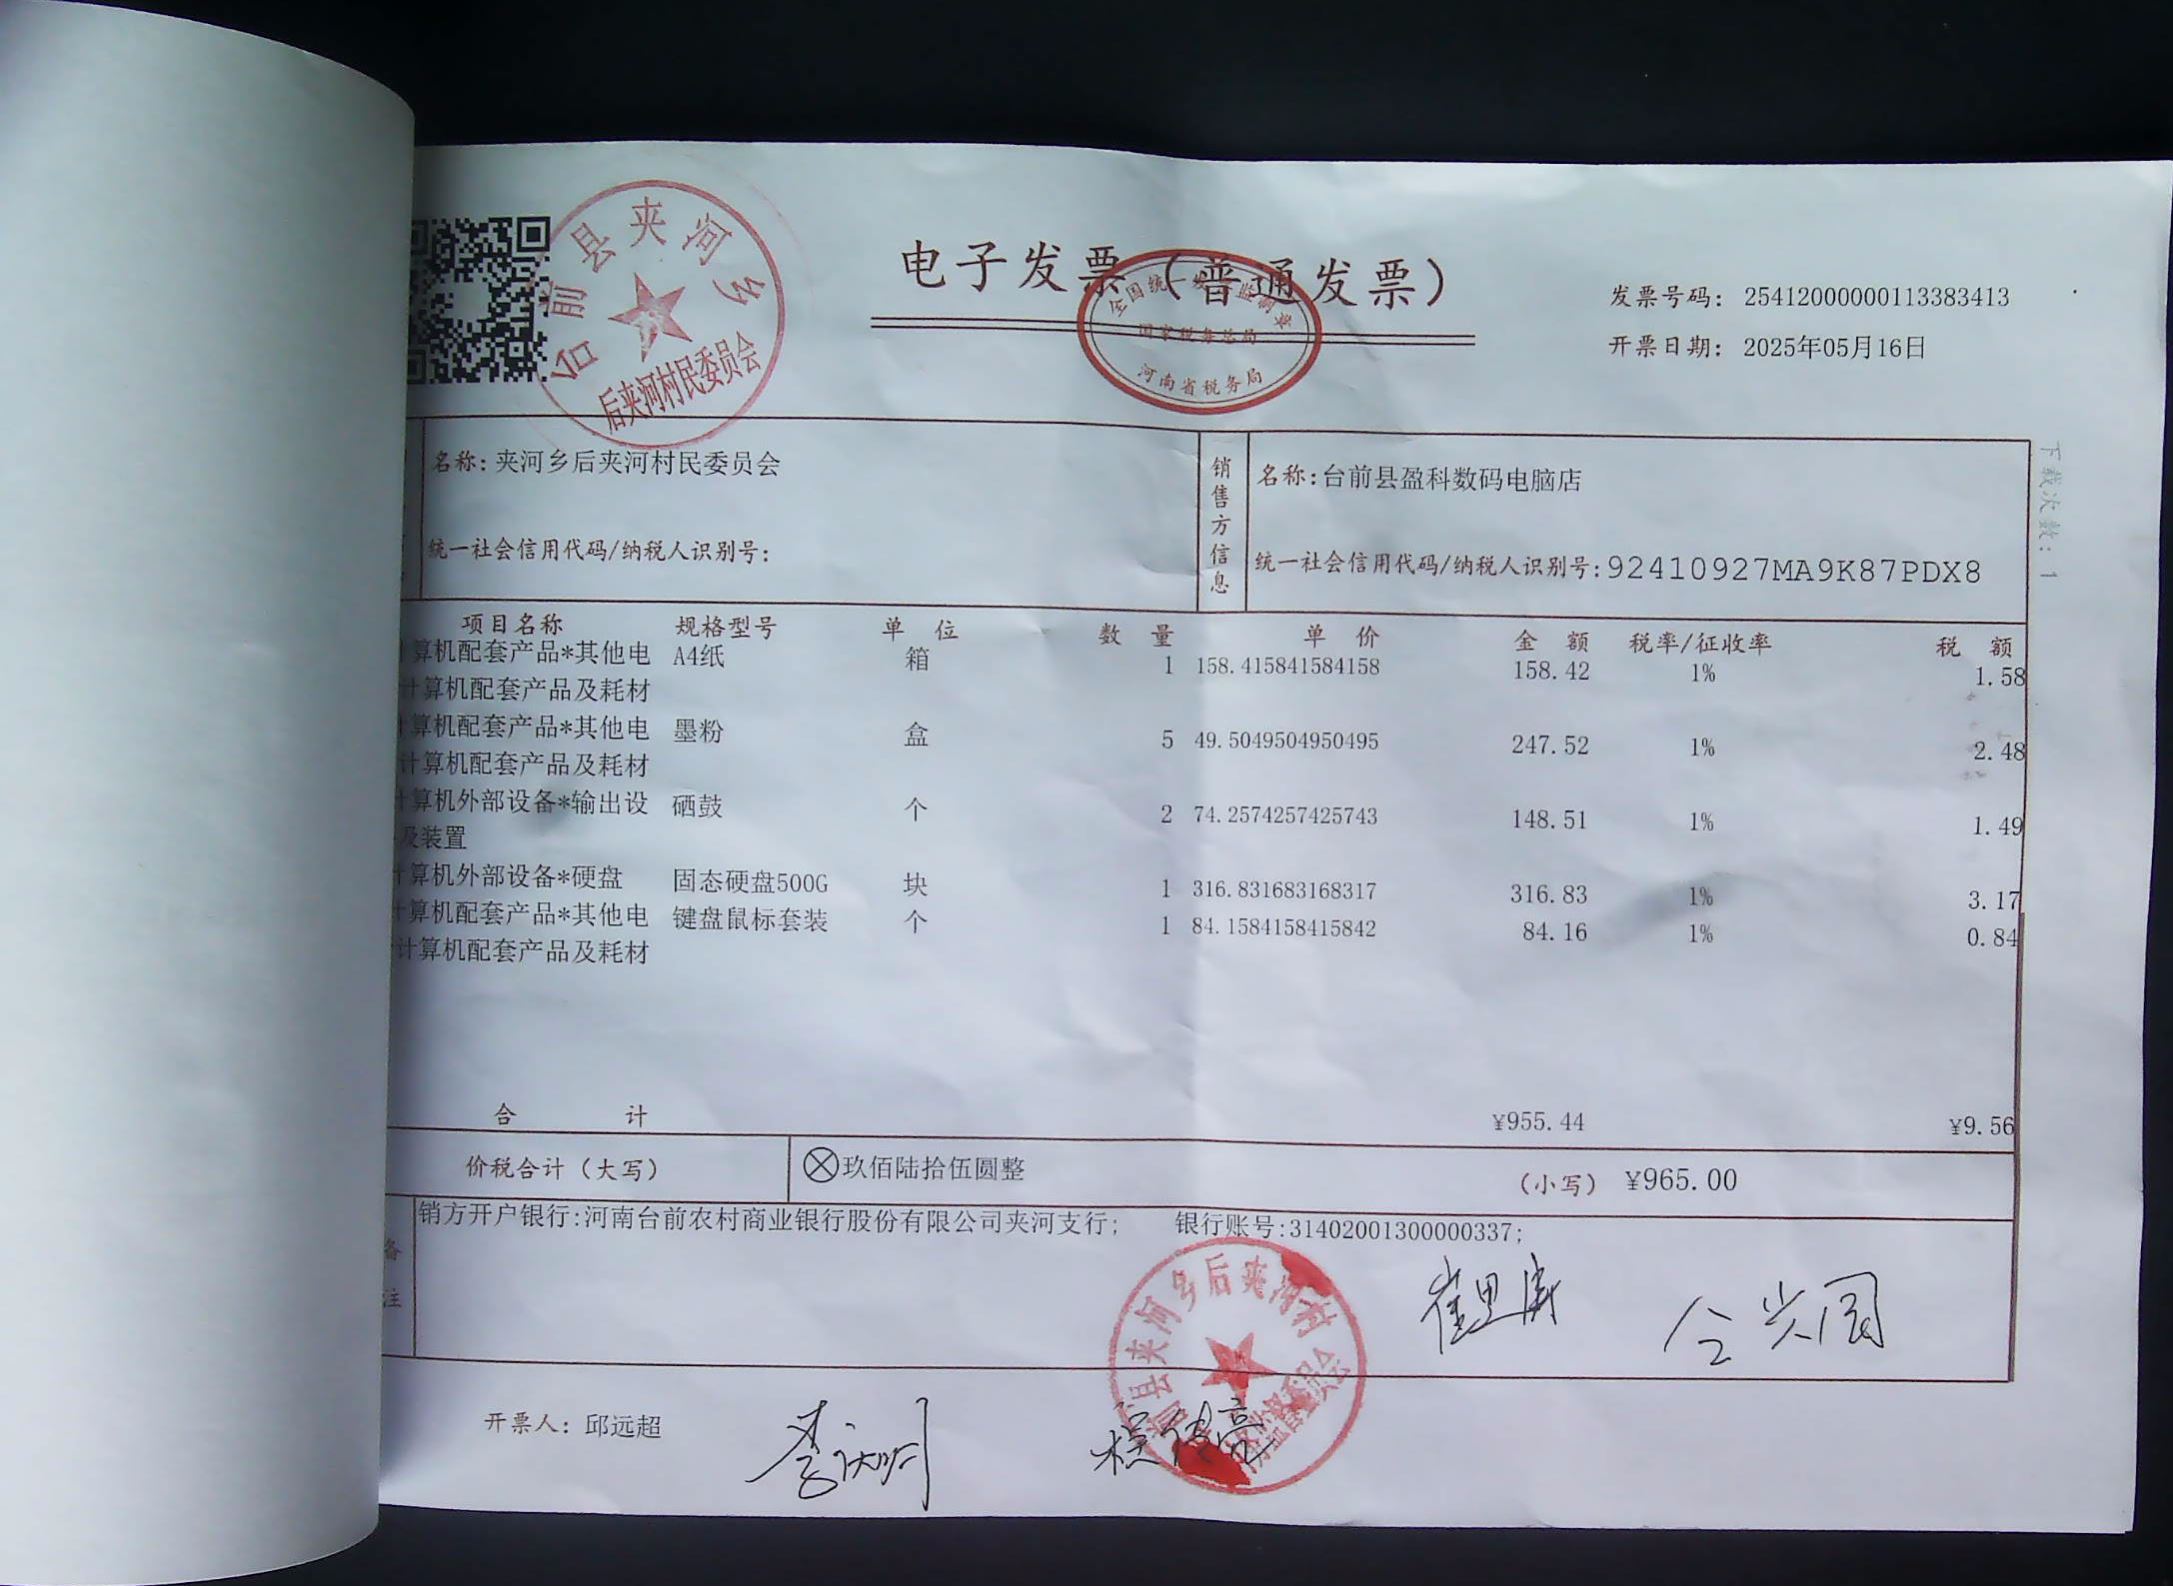 电子发票（普通发票）
发票号码：25412000000113383413
开票日期：2025年05月16日
台前县夹河乡
后夹河村民委员会
全国统一发票监制章
国家税务总局
河南省税务局
下载次数：1
名称：夹河乡后夹河村民委员会
统一社会信用代码/纳税人识别号：
销售方信息
名称：台前县盈科数码电脑店
统一社会信用代码/纳税人识别号：92410927MA9K87PDX8
项目名称 规格型号 单位 数量 单价 金额 税率/征收率 税额
计算机配套产品*其他电 A4纸 箱 1 158.415841584158 158.42 1% 1.58
计算机配套产品及耗材
计算机配套产品*其他电 墨粉 盒 5 49.5049504950495 247.52 1% 2.48
计算机配套产品及耗材
计算机外部设备*输出设 硒鼓 个 2 74.2574257425743 148.51 1% 1.49
及装置
计算机外部设备*硬盘 固态硬盘500G 块 1 316.831683168317 316.83 1% 3.17
计算机配套产品*其他电 键盘鼠标套装 个 1 84.1584158415842 84.16 1% 0.84
计算机配套产品及耗材
合计 ¥955.44 ¥9.56
价税合计（大写） ⊗玖佰陆拾伍圆整 （小写）¥965.00
备注
销方开户银行:河南台前农村商业银行股份有限公司夹河支行; 银行账号:31402001300000337;
县夹河乡后夹河村
开票人：邱远超